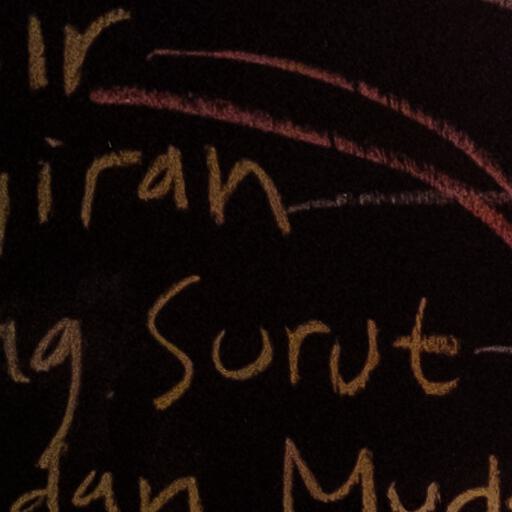 Ir
iran
ng Surut
dan Mud